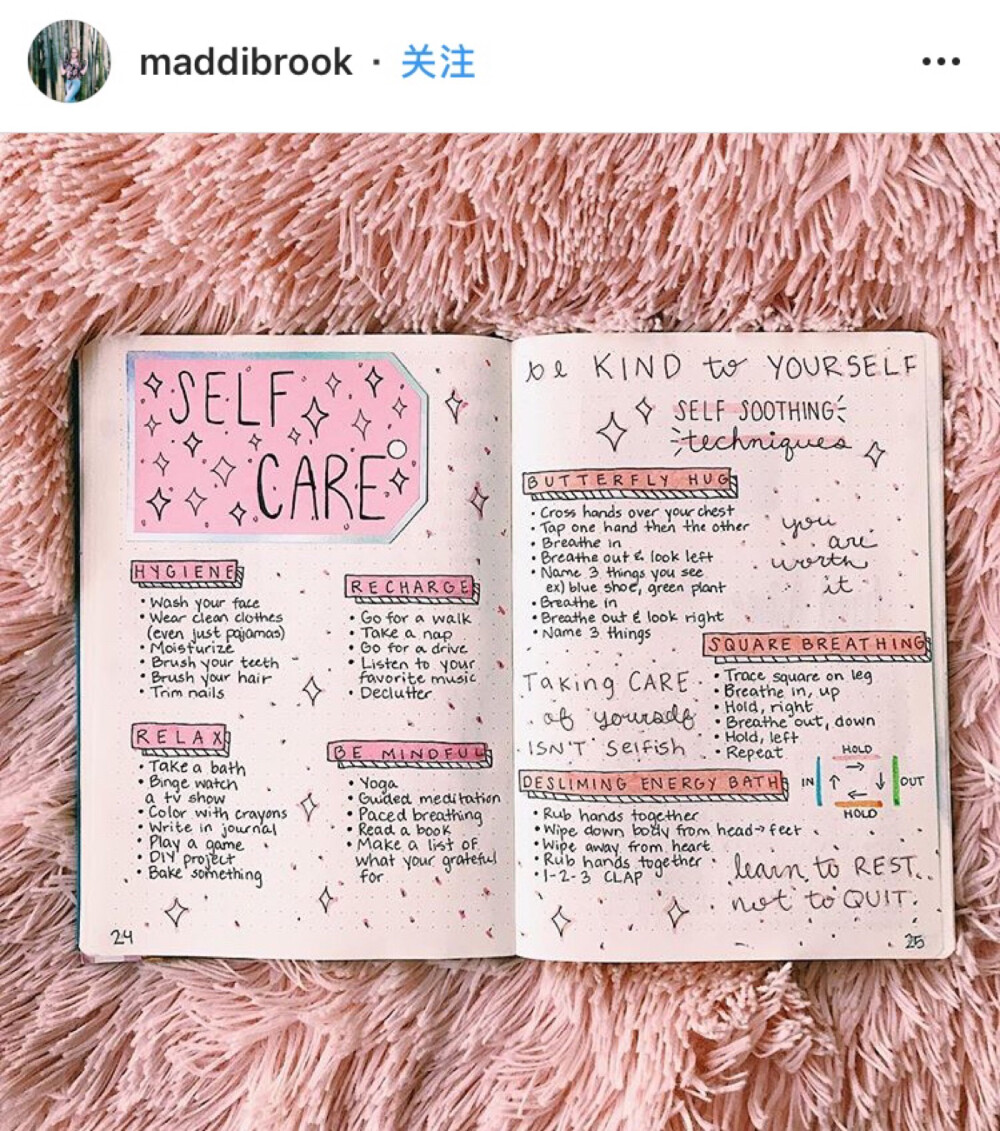 maddibrook · 关注
SELF
CARE
HYGIENE
• Wash your face
• Wear clean clothes
(even just pajamas)
• Moisturize
• Brush your teeth
• Brush your hair
• Trim nails
RECHARGE
• Go for a walk
• Take a nap
• Go for a drive
• Listen to your
favorite music
• Declutter
RELAX
• Take a bath
• Binge watch
a tv show
• Color with crayons
• Write in journal
• Play a game
• DIY project
• Bake something
BE MINDFUL
• Yoga
• Guided meditation
• Paced breathing
• Read a book
• Make a list of
what your grateful
for
24
be KIND to YOURSELF
SELF SOOTHING
techniques
BUTTERFLY HUG
• Cross hands over your chest
• Tap one hand then the other
• Breathe in
• Breathe out & look left
• Name 3 things you see
ex) blue shoe, green plant
• Breathe in
• Breathe out & look right
• Name 3 things
you
are
worth
it
SQUARE BREATHING
• Trace square on leg
• Breathe in, up
• Hold, right
• Breathe out, down
• Hold, left
• Repeat
HOLD
IN ↑ → ↓ ← OUT
HOLD
Taking CARE
of yourself
ISN'T selfish
DESLIMING ENERGY BATH
• Rub hands together
• Wipe down body from head→feet
• Wipe away from heart
• Rub hands together
• 1-2-3 CLAP
learn to REST
not to QUIT.
25